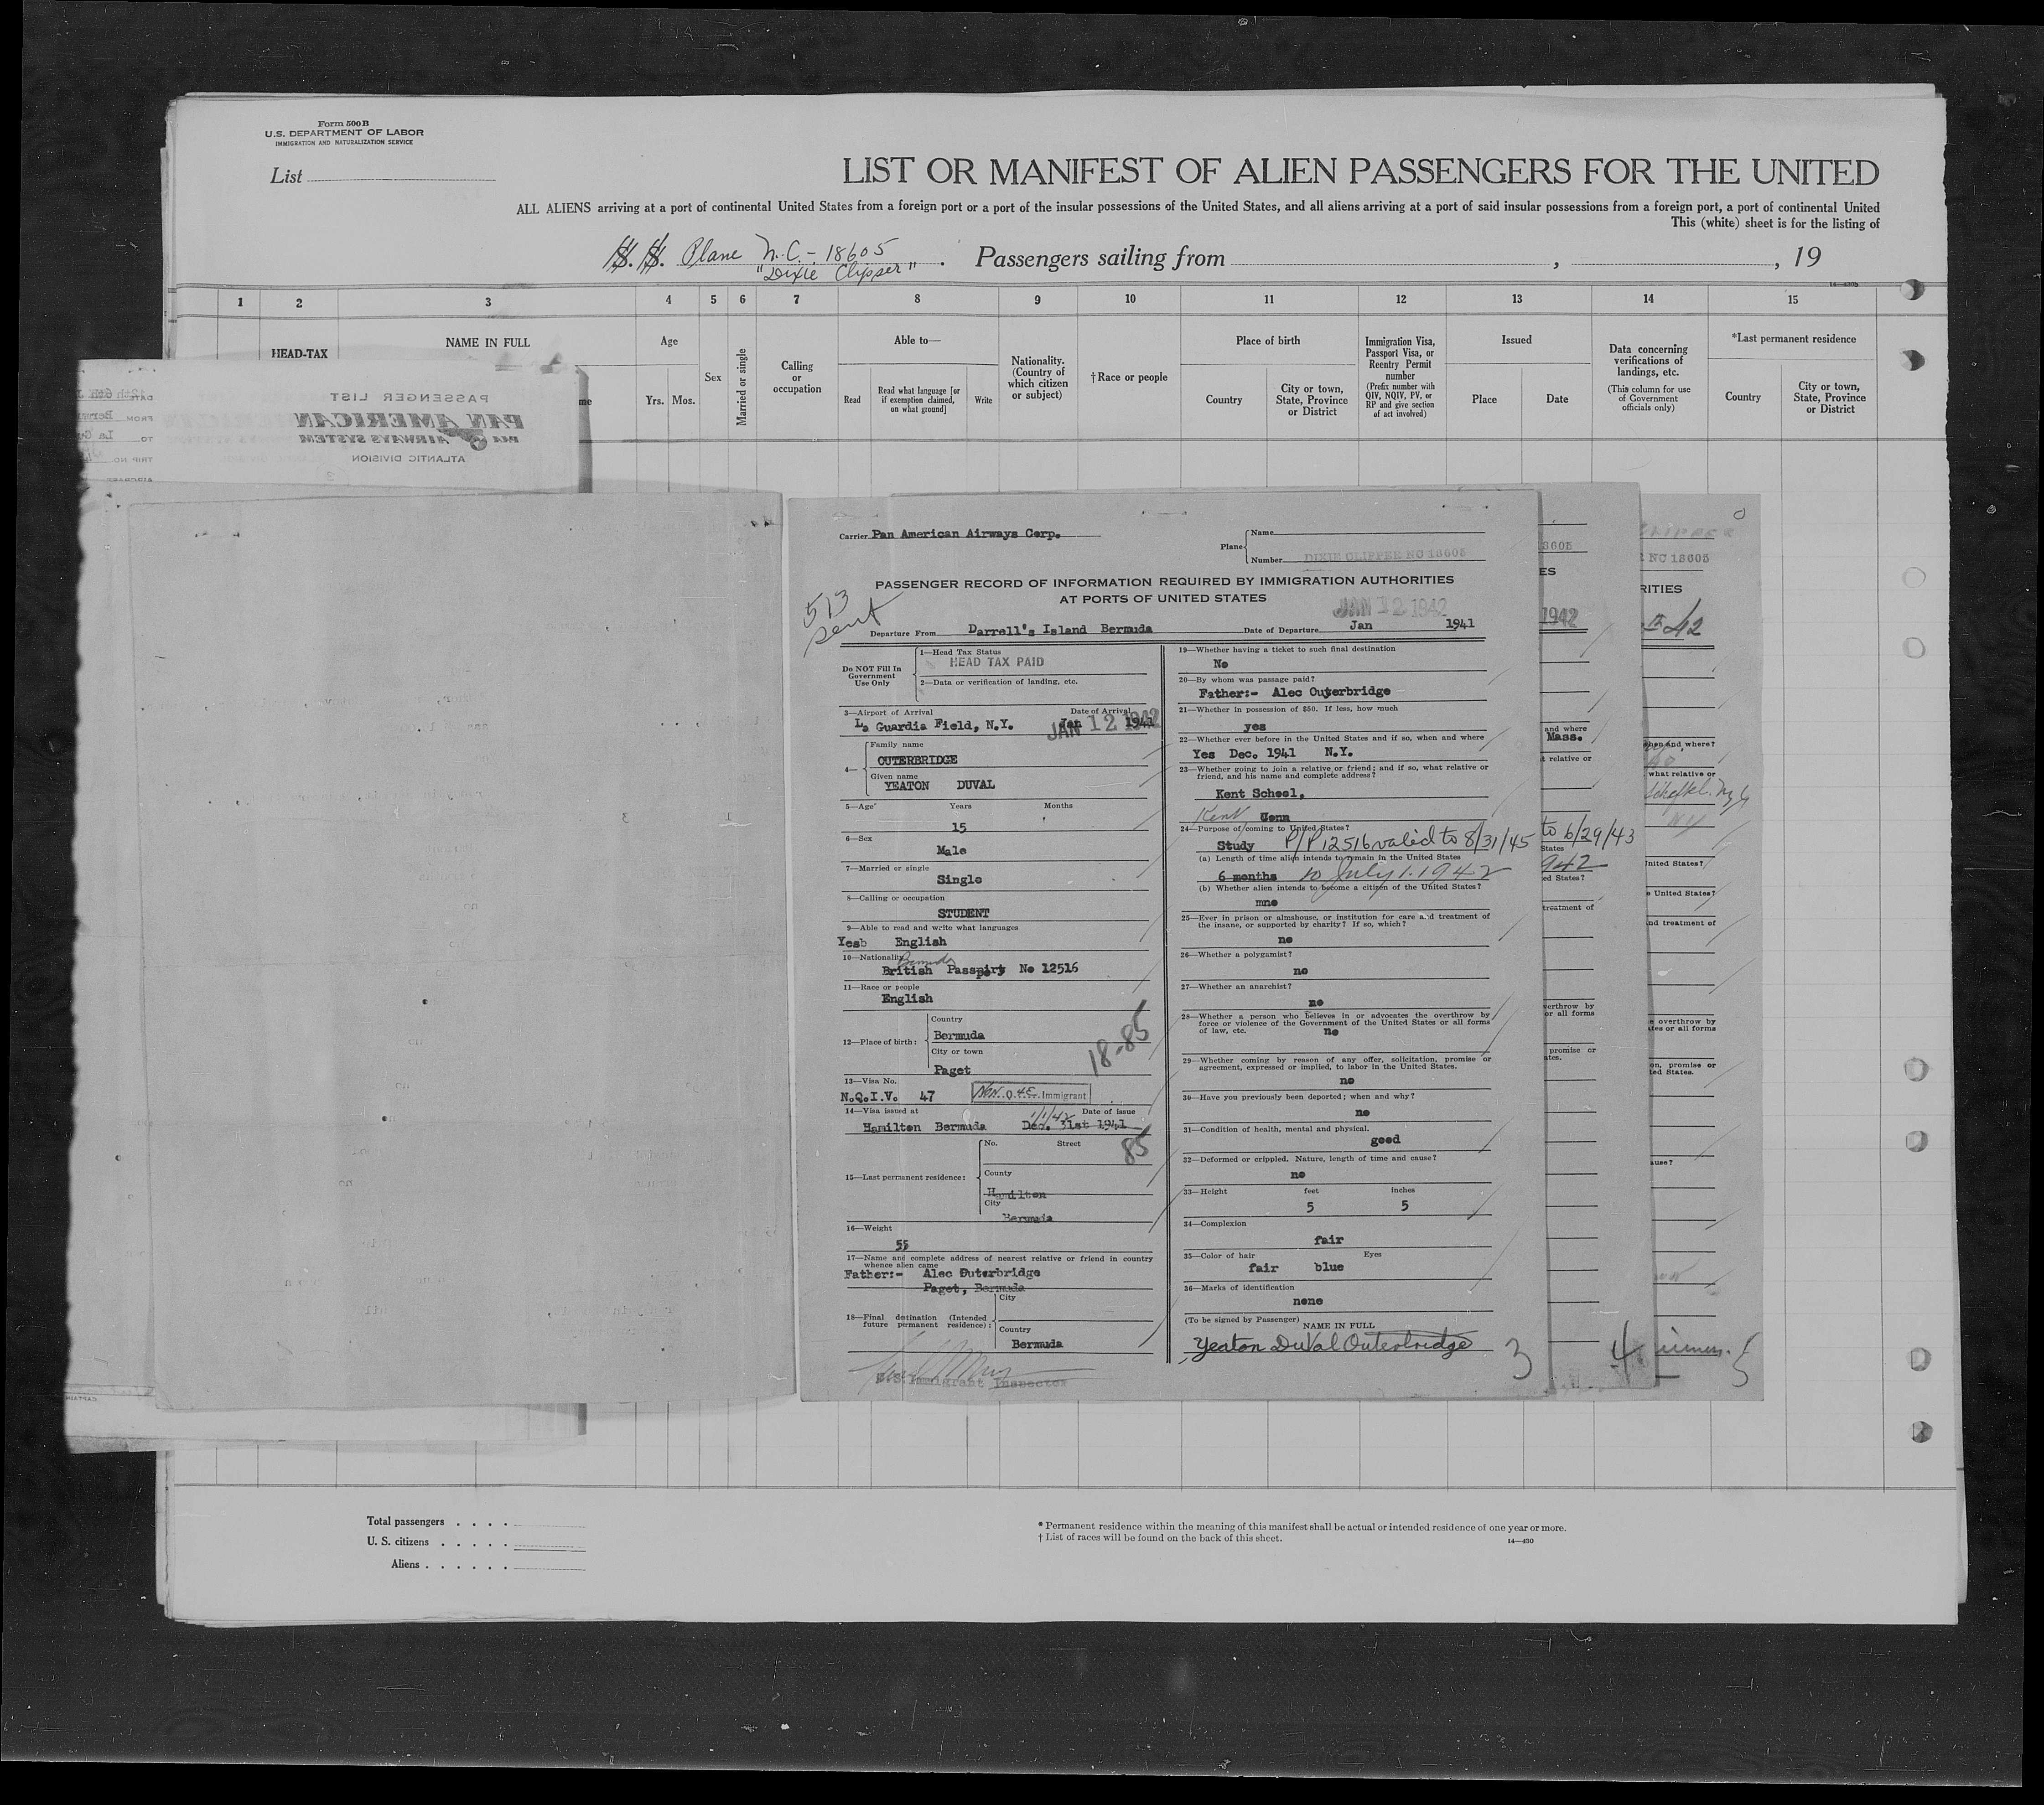 Form 500 B
U.S. DEPARTMENT OF LABOR
IMMIGRATION AND NATURALIZATION SERVICE
List
LIST OR MANIFEST OF ALIEN PASSENGERS FOR THE UNITED
ALL ALIENS arriving at a port of continental United States from a foreign port or a port of the insular possessions of the United States, and all aliens arriving at a port of said insular possessions from a foreign port, a port of continental United
This (white) sheet is for the listing of
S. S. Plane N.C.-18605 . Passengers sailing from , , 19
"Dixie Clipper"
1 2 3 4 5 6 7 8 9 10 11 12 13 14 15
HEAD-TAX
NAME IN FULL
Age
Yrs. Mos.
Sex
Married or single
Calling
or
occupation
Able to—
Read
Read what language [or
if exemption claimed,
on what ground]
Write
Nationality.
(Country of
which citizen
or subject)
†Race or people
Place of birth
Country
City or town,
State, Province
or District
Immigration Visa,
Passport Visa, or
Reentry Permit
number
(Prefix number with
QIV, NQIV, PV, or
RP and give section
of act involved)
Issued
Place
Date
Data concerning
verifications of
landings, etc.
(This column for use
of Government
officials only)
*Last permanent residence
Country
City or town,
State, Province
or District
PASSENGER LIST
PAN AMERICAN
AIRWAYS SYSTEM
ATLANTIC DIVISION
DATE
FROM
TO
TRIP NO.
Carrier Pan American Airways Corp.
Plane
Name
Number DIXIE CLIPPER NC 18605
PASSENGER RECORD OF INFORMATION REQUIRED BY IMMIGRATION AUTHORITIES
AT PORTS OF UNITED STATES
513
sent
JAN 12 1942
Departure From Darrell's Island Bermuda Date of Departure Jan 1941
Do NOT Fill In
Government
Use Only
1—Head Tax Status
HEAD TAX PAID
2—Data or verification of landing, etc.
3—Airport of Arrival Date of Arrival
La Guardia Field, N.Y. Jan 1941
JAN 12 1942
4—
Family name
OUTERBRIDGE
Given name
YEATON DUVAL
5—Age Years Months
15
6—Sex
Male
7—Married or single
Single
8—Calling or occupation
STUDENT
9—Able to read and write what languages
Yesb English
10—Nationality
Bermuda
British Passpirt No 12516
11—Race or people
English
12—Place of birth:
Country
Bermuda
City or town
Paget
18-85
13—Visa No.
N.Q.I.V. 47 Immigrant
14—Visa issued at Date of issue
1/1/42
Hamilton Bermuda Dec. 31st 1941
85
15—Last permanent residence:
No. Street
County
Hamilton
City
Bermuda
16—Weight
55
17—Name and complete address of nearest relative or friend in country
whence alien came
Father:- Alec Outerbridge
Paget, Bermuda
18—Final detination (Intended
future permanent residence):
City
Country
Bermuda
U.S. Immigrant Inspector
19—Whether having a ticket to such final destination
No
20—By whom was passage paid?
Father:- Alec Outerbridge
21—Whether in possession of $50. If less, how much
yes
22—Whether ever before in the United States and if so, when and where
Yes Dec. 1941 N.Y.
23—Whether going to join a relative or friend; and if so, what relative or
friend, and his name and complete address?
Kent School,
Kent Conn
24—Purpose of coming to United States?
Study P/P 12516 valid to 8/31/45
(a) Length of time alien intends to remain in the United States
6 months to July 1. 1942
(b) Whether alien intends to become a citizen of the United States?
mno
25—Ever in prison or almshouse, or institution for care and treatment of
the insane, or supported by charity? If so, which?
no
26—Whether a polygamist?
no
27—Whether an anarchist?
no
28—Whether a person who believes in or advocates the overthrow by
force or violence of the Government of the United States or all forms
of law, etc.
no
29—Whether coming by reason of any offer, solicitation, promise or
agreement, expressed or implied, to labor in the United States.
no
30—Have you previously been deported; when and why?
no
31—Condition of health, mental and physical.
good
32—Deformed or crippled. Nature, length of time and cause?
no
33—Height feet inches
5 5
34—Complexion
fair
35—Color of hair Eyes
fair blue
36—Marks of identification
none
(To be signed by Passenger)
NAME IN FULL
Yeaton DuVal Outerbridge
3
8605
ES
1942
and where
Mass.
t relative or
to 6/29/43
States
942
ed States?
treatment of
verthrow by
or all forms
promise or
ates.
4
NC 18605
RITIES
42
when and, where?
what relative or
United States?
e United States?
nd treatment of
e overthrow by
tes or all forms
on, promise or
ted States.
ause?
5
Total passengers . . . .
U. S. citizens . . . . .
Aliens . . . . . .
* Permanent residence within the meaning of this manifest shall be actual or intended residence of one year or more.
† List of races will be found on the back of this sheet.
14—430